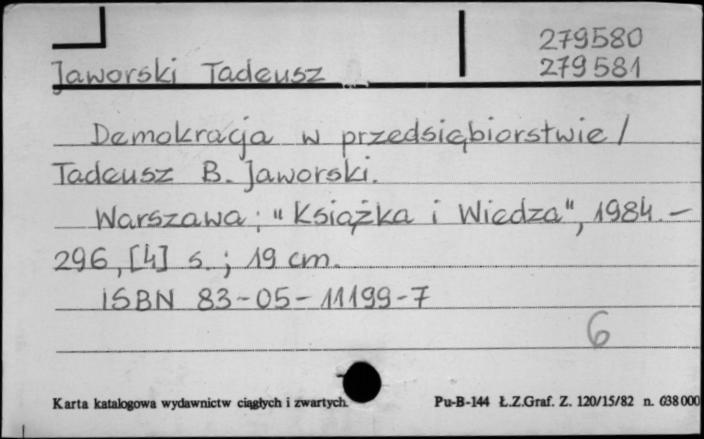 279580
Jaworski Tadeusz 279581
Demokracja w przedsiębiorstwie /
Tadeusz B. Jaworski.
Warszawa : "Książka i Wiedza", 1984. –
296, [4] s. ; 19 cm.
ISBN 83-05-11199-7
6
Karta katalogowa wydawnictw ciągłych i zwartych. Pu-B-144 Ł.Z.Graf. Z. 120/15/82 n. 638000